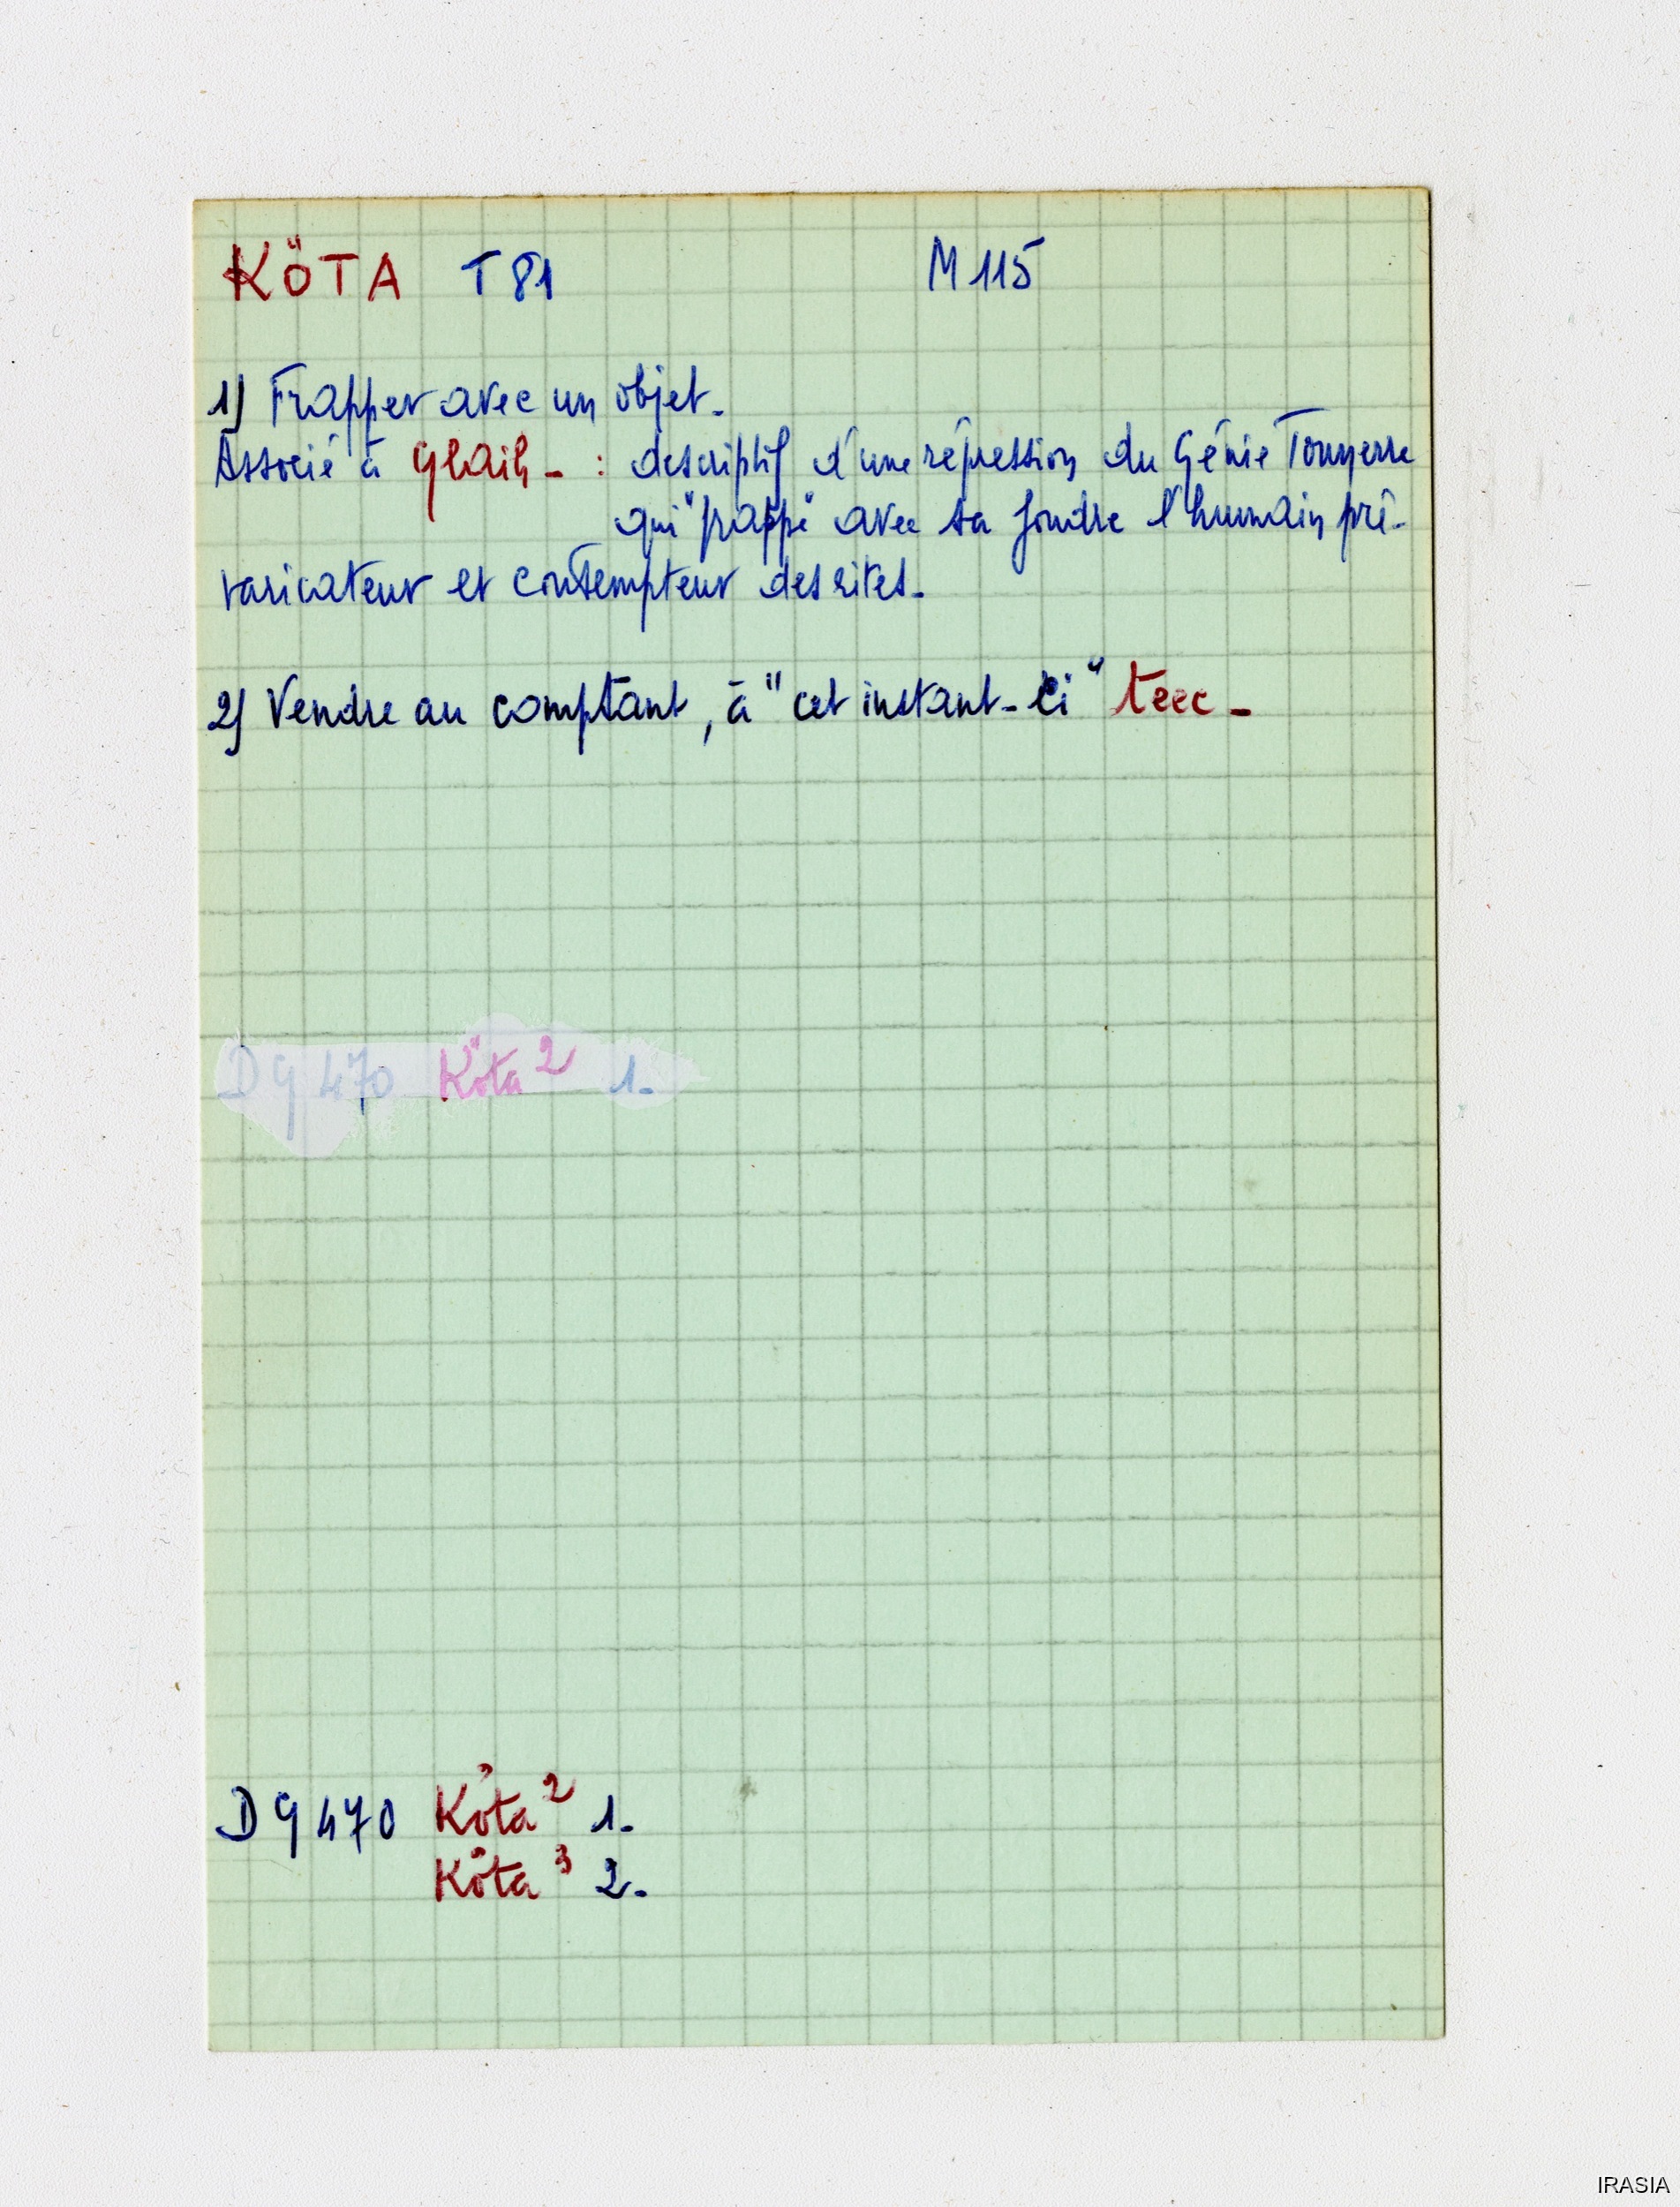 KÖTA T81 M115
1) Frapper avec un objet.
Associé à Glaih - : descriptif d'une répression du Génie Tonnerre
qui "frappe" avec sa foudre l'humain pré-
varicateur et contempteur des rites.
2) Vendre au comptant, à "cet instant-ci" teec -
DG 470 Köta 2 1.
DG 470 Köta 2 1.
Köta 3 2.
IRASIA